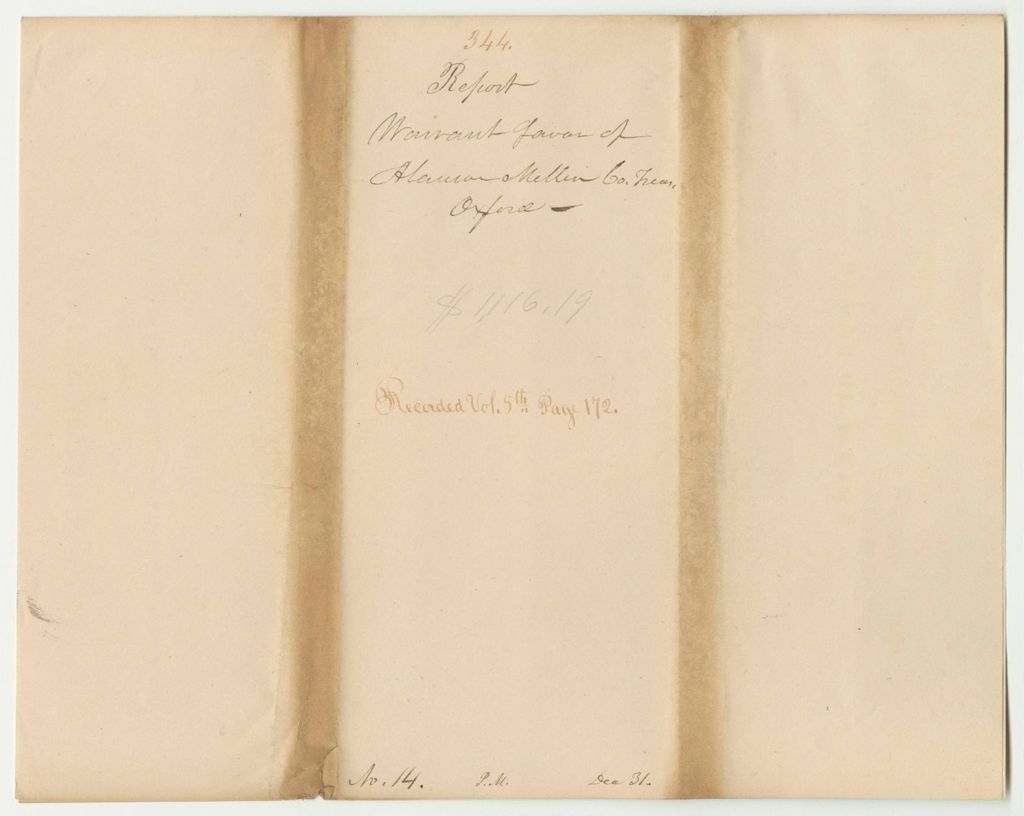 344.
Report
Warrant favor of
Alanson Mellen Co. Treas.
Oxford —
$1,116.19
Recorded Vol. 5th Page 172.
No. 14. P.M. Dec 31.